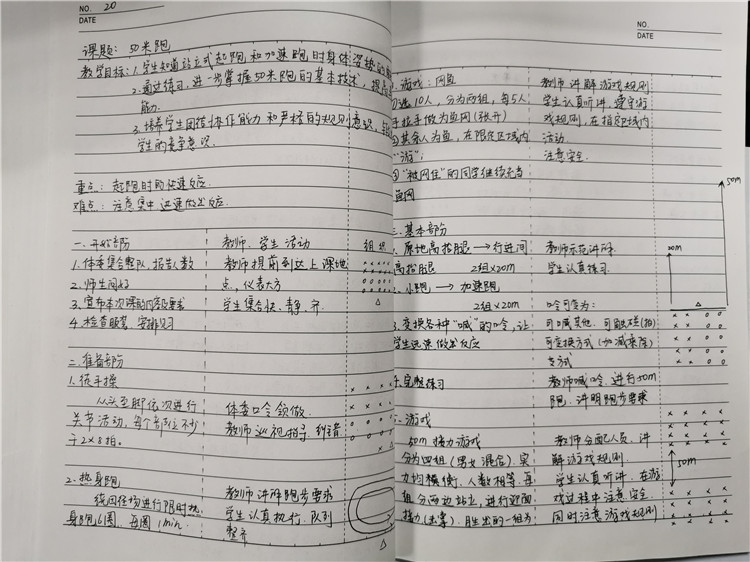 NO. 20
DATE
课题：50米跑
教学目标：1.学生知道站立式起跑和加速跑时身体姿势的
2.通过练习，进一步掌握50米跑的基本技术，提高
能力.
3.培养学生团结协作能力和严格的规则意识，
学生的竞争意识.
重点：起跑时的快速反应.
难点：注意集中迅速做出反应.
一.开始部份 教师、学生活动 组织
1.体委集合整队，报告人数 教师提前到达上课地
2.师生问好 点，仪表大方
3.宣布本次课的内容及要求 学生集合快、静、齐
4.检查服装，安排见习
二.准备部份
1.徒手操
从头至脚依次进行 体委口令领做.
关节活动，每个部位不少 教师巡视指导，纠错
于2×8拍.
2.热身跑 教师讲解跑步要求
绕田径场进行限时热 学生认真执行.队列
身跑6圈，每圈1min. 整齐
NO.
DATE
游戏：网鱼 教师讲解游戏规则
①选10人，分为两组，每5人 学生认真听讲，遵守游
手拉手做为鱼网(张开) 戏规则，在指定域内
②其余人为鱼，在限定区域内 活动.
“游”； 注意安全.
③“被网住”的同学继续充当
鱼网
50m
三.基本部份
1.原地高抬腿→行进间 教师示范讲解 20m
高抬腿 2组×20m 学生认真练习.
2.小跑→加速跑
2组×20m 口令可变为：
3.变换各种“喊”的口令，让 可喊其他.可触碰(拍)
学生迅速做出反应 可变换方式(加减乘除)
等方式
完整练习 教师喊口令，进行50m
跑.讲明跑步要求
游戏
50m接力游戏 教师分配人员.讲
分为四组(男女混合).实 解游戏规则.
力均横衡，人数相等.每 学生认真听讲.在游 50m
组分两边站立，进行迎面 戏过程中注意安全.
接力(击掌).胜出的一组为 同时注意游戏规则